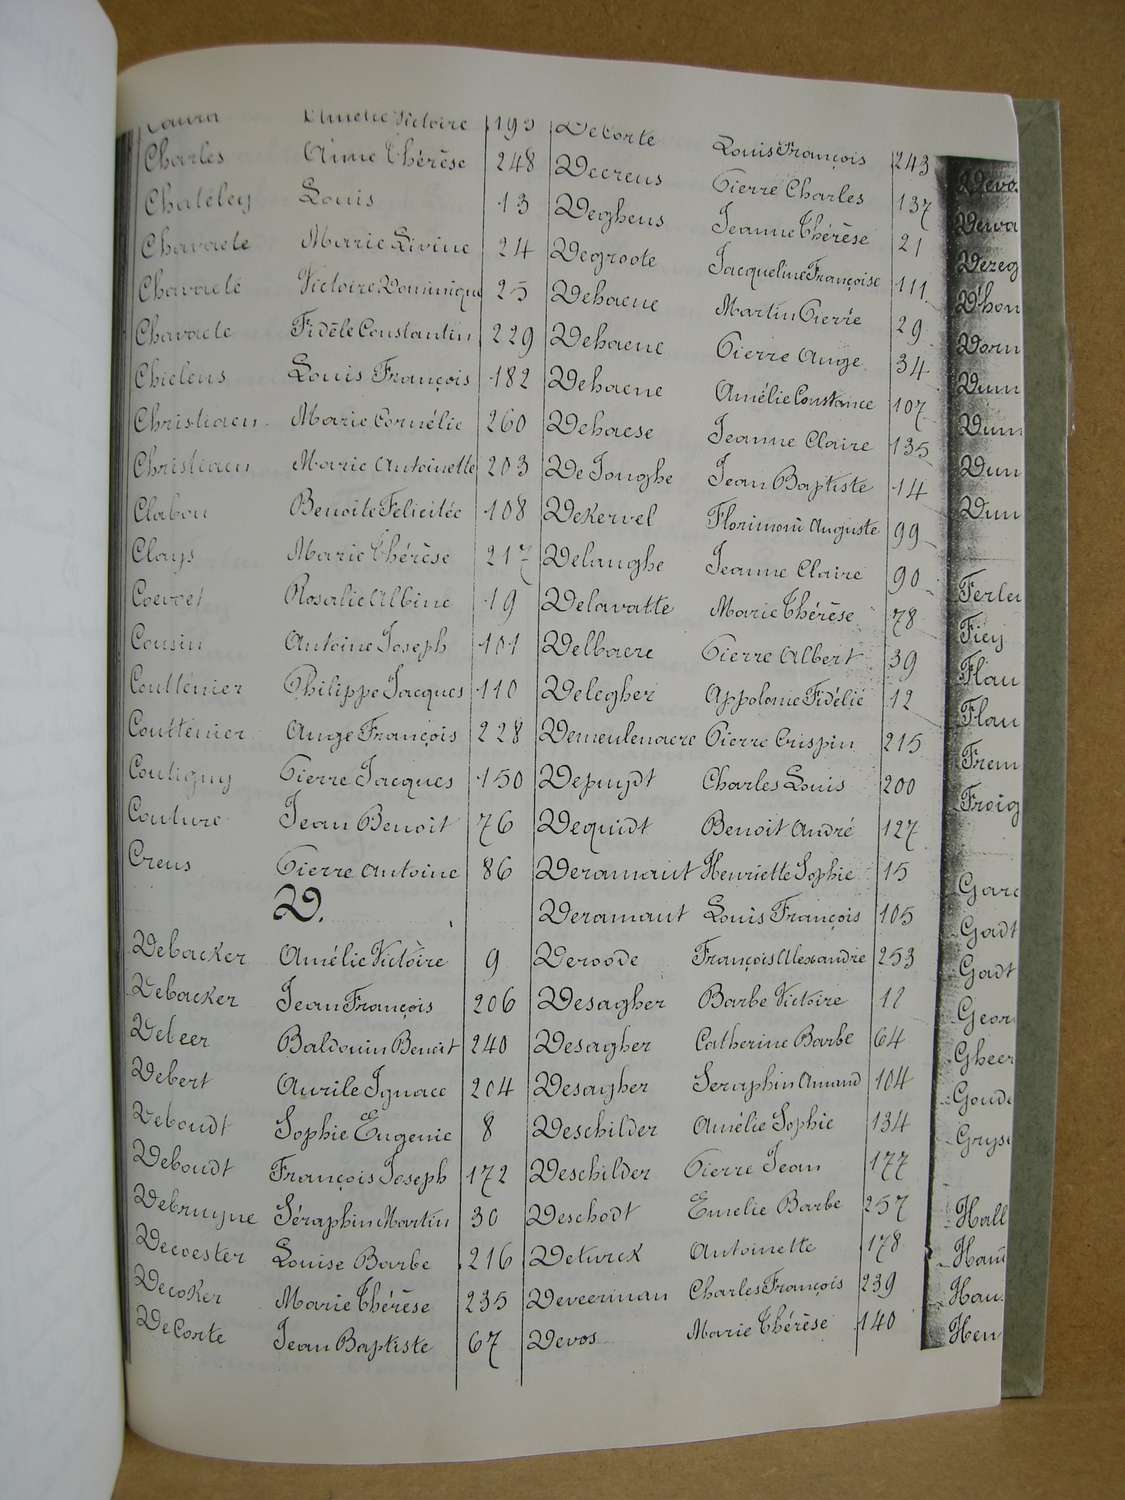 Amélie Victoire 195
Charles Aimé Thérèse 248
Chatéley Louis 13
Chavaete Marie Livine 24
Chavaete Victoire Dominique 25
Chavaete Fidèle Constantin 229
Chielens Louis François 182
Christiaen Marie Cornélie 260
Christiaen Marie Antoinette 203
Clabou Benoite Felicitée 108
Clays Marie Thérèse 217
Coevoet Rosalie Albine 19
Cousin Antoine Joseph 101
Couttenier Philippe Jacques 110
Couttenier Ange François 228
Coutigny Pierre Jacques 150
Couture Jean Benoit 76
Creus Pierre Antoine 86
D.
Debacker Amélie Victoire 9
Debacker Jean François 206
Debeer Baldouin Benoit 240
Debert Aurile Ignace 204
Deboudt Sophie Eugenie 8
Deboudt François Joseph 172
Debruyne Séraphin Martin 30
Decoester Louise Barbe 216
Decoker Marie Thérèse 235
DeConte Jean Baptiste 67
DeCorte Louis François 243
Decreus Pierre Charles 137
Degheus Jeanne Thérèse 21
Degroote Jacqueline Françoise 111
Dehaene Martin Pierre 29
Dehaene Pierre Ange 34
Dehaene Amélie Constance 107
Dehaese Jeanne Claire 135
De Jonghe Jean Baptiste 14
Dekervel Florimond Auguste 99
Delanghe Jeanne Claire 90
Delavatte Marie Thérèse 78
Delbaere Pierre Albert 39
Delegher Appolonie Fidélie 12
Demeulenaere Pierre Crispin 215
Depuydt Charles Louis 200
Dequidt Benoit André 127
Deramaut Henriette Sophie 15
Deramaut Louis François 105
Deroode François Alexandre 253
Desagher Barbe Victoire 12
Desagher Catherine Barbe 64
Desagher Seraphin Amand 104
Deschilder Amélie Sophie 134
Deschilder Pierre Jean 177
Deschodt Emelie Barbe 257
Deturck Antoinette 178
Deveerman Charles François 239
Devos Marie Thérèse 140
Devo
Dewa
Dezeg
D'hon
Dorn
Dum
Dum
Dun
Dun
Ferle
Ficy
Flau
Flau
Frem
Froig
Gard
Gadt
Gadt
Geor
Gheer
Goude
Gryse
Hall
Hau
Hau
Hen